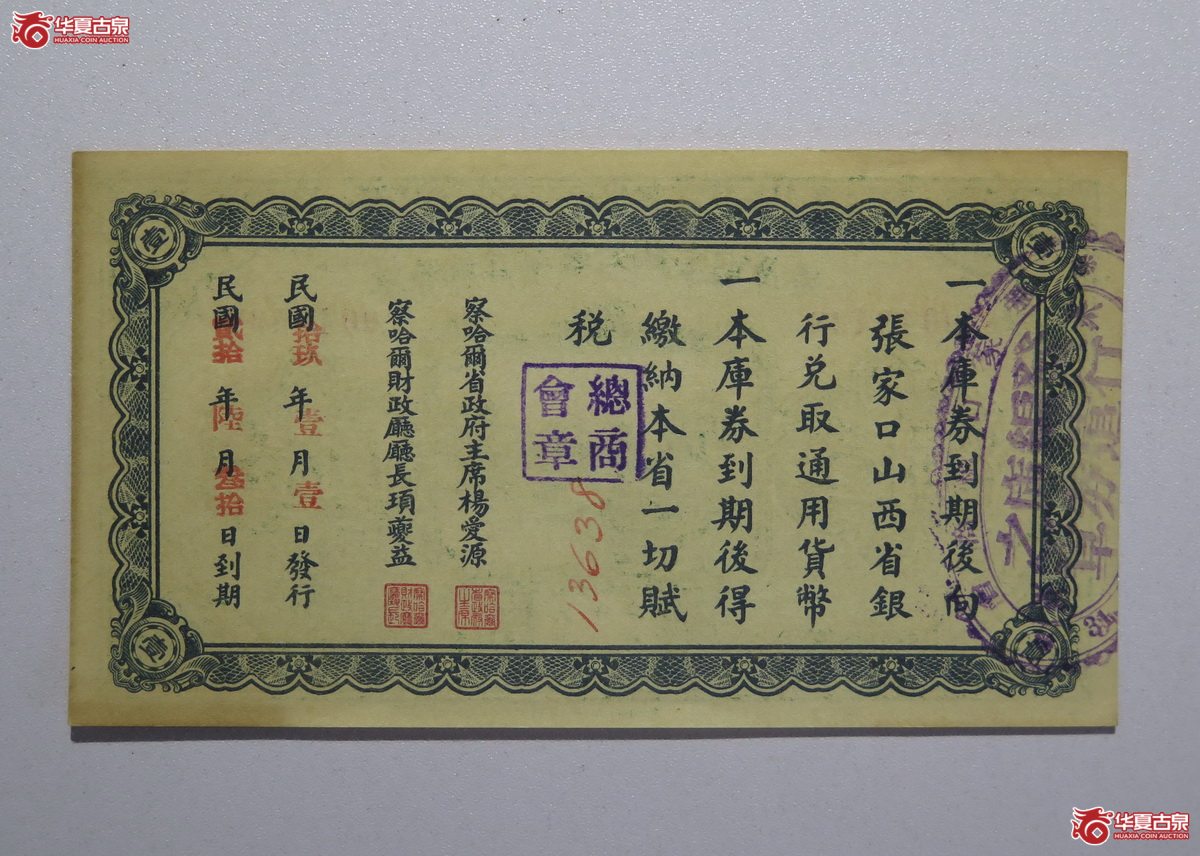 华夏古泉
HUAXIA COIN AUCTION
一本庫券到期後向
張家口山西省銀
行兌取通用貨幣
一本庫券到期後得
繳納本省一切賦
税
總商
會章
13638
察哈爾省政府主席楊愛源
察哈爾財政廳廳長項夔益
民國拾玖年壹月壹日發行
民國貳拾年陸月叁拾日到期
壹
壹
壹
壹
华夏古泉
HUAXIA COIN AUCTION